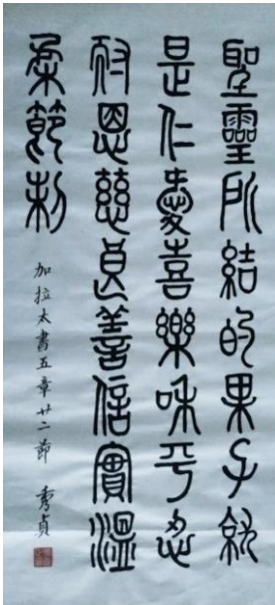 聖靈所結的果子就
是仁愛喜樂和平忍
耐恩慈良善信實溫
柔節制
加拉太書五章廿二節 秀貞